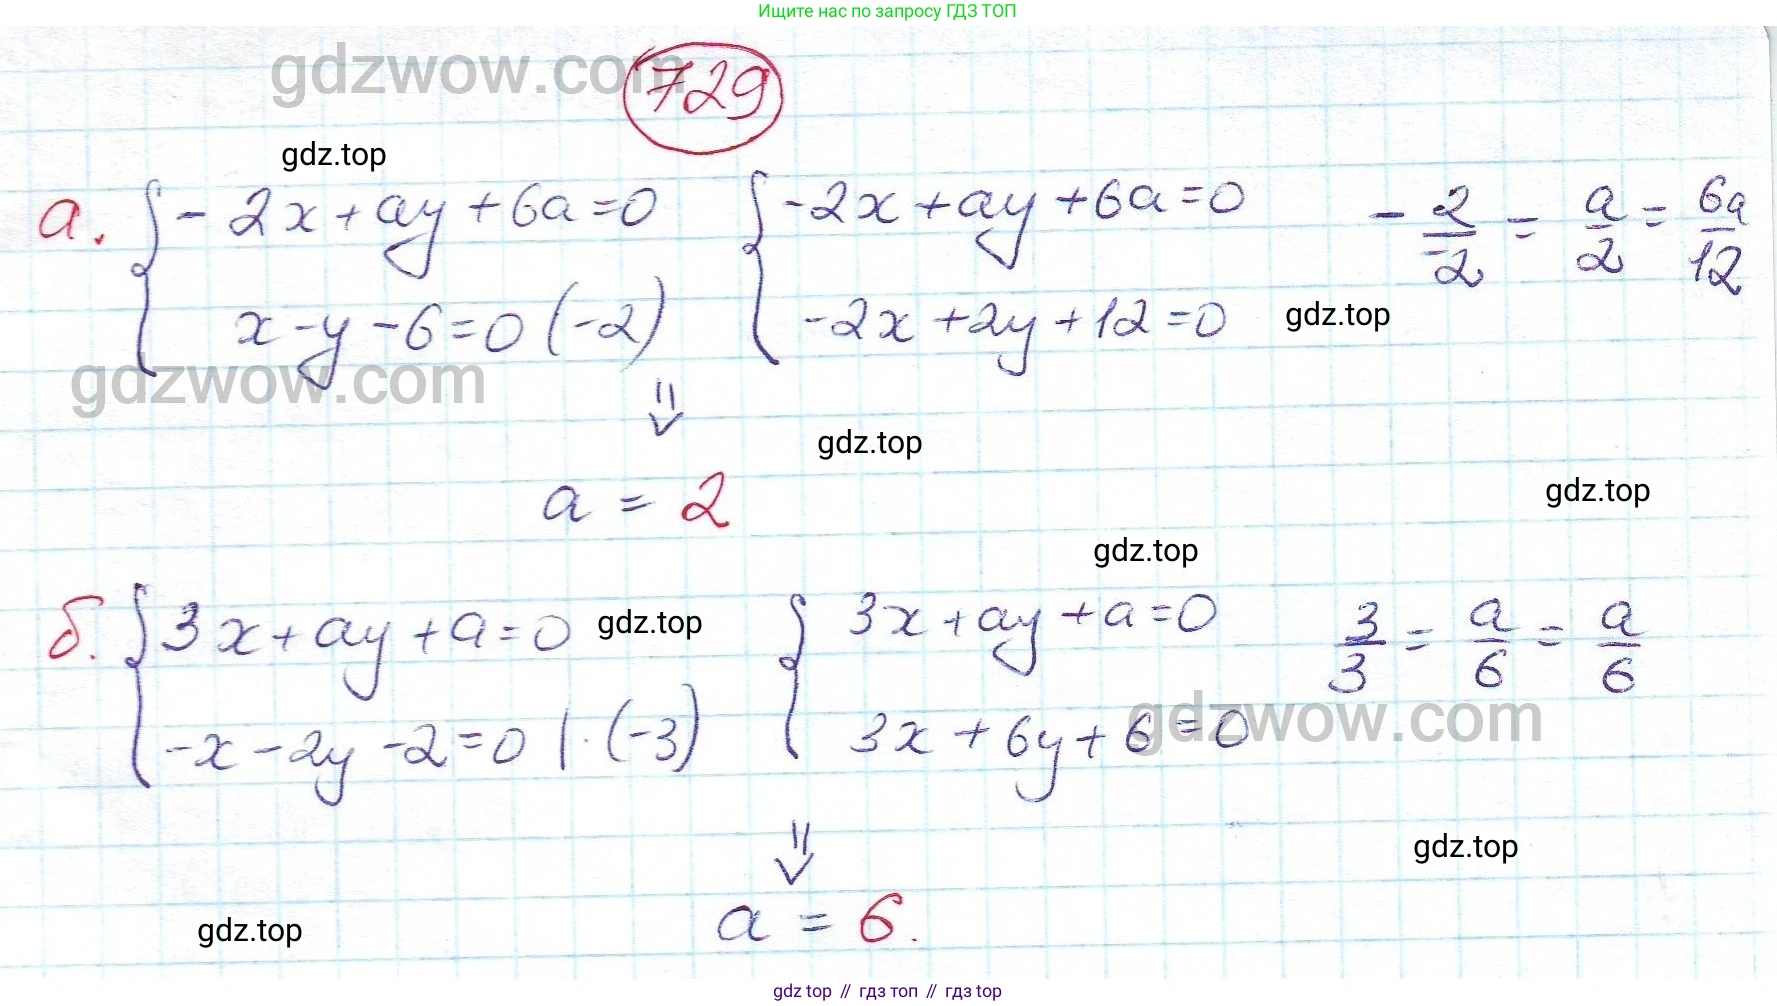 Ищите нас по запросу ГДЗ ТОП
gdzwow.com
729
gdz.top
а. { -2x + ay + 6a = 0 { -2x + ay + 6a = 0 -2/-2 = a/2 = 6a/12
x - y - 6 = 0 (-2) -2x + 2y + 12 = 0 gdz.top
gdzwow.com
⇓
gdz.top
a = 2
gdz.top
gdz.top
б. { 3x + ay + a = 0 gdz.top { 3x + ay + a = 0 3/3 = a/6 = a/6
-x - 2y - 2 = 0 | · (-3) 3x + 6y + 6 = 0
gdzwow.com
⇓
gdz.top
a = 6.
gdz.top
gdz.top // гдз топ // гдз.top